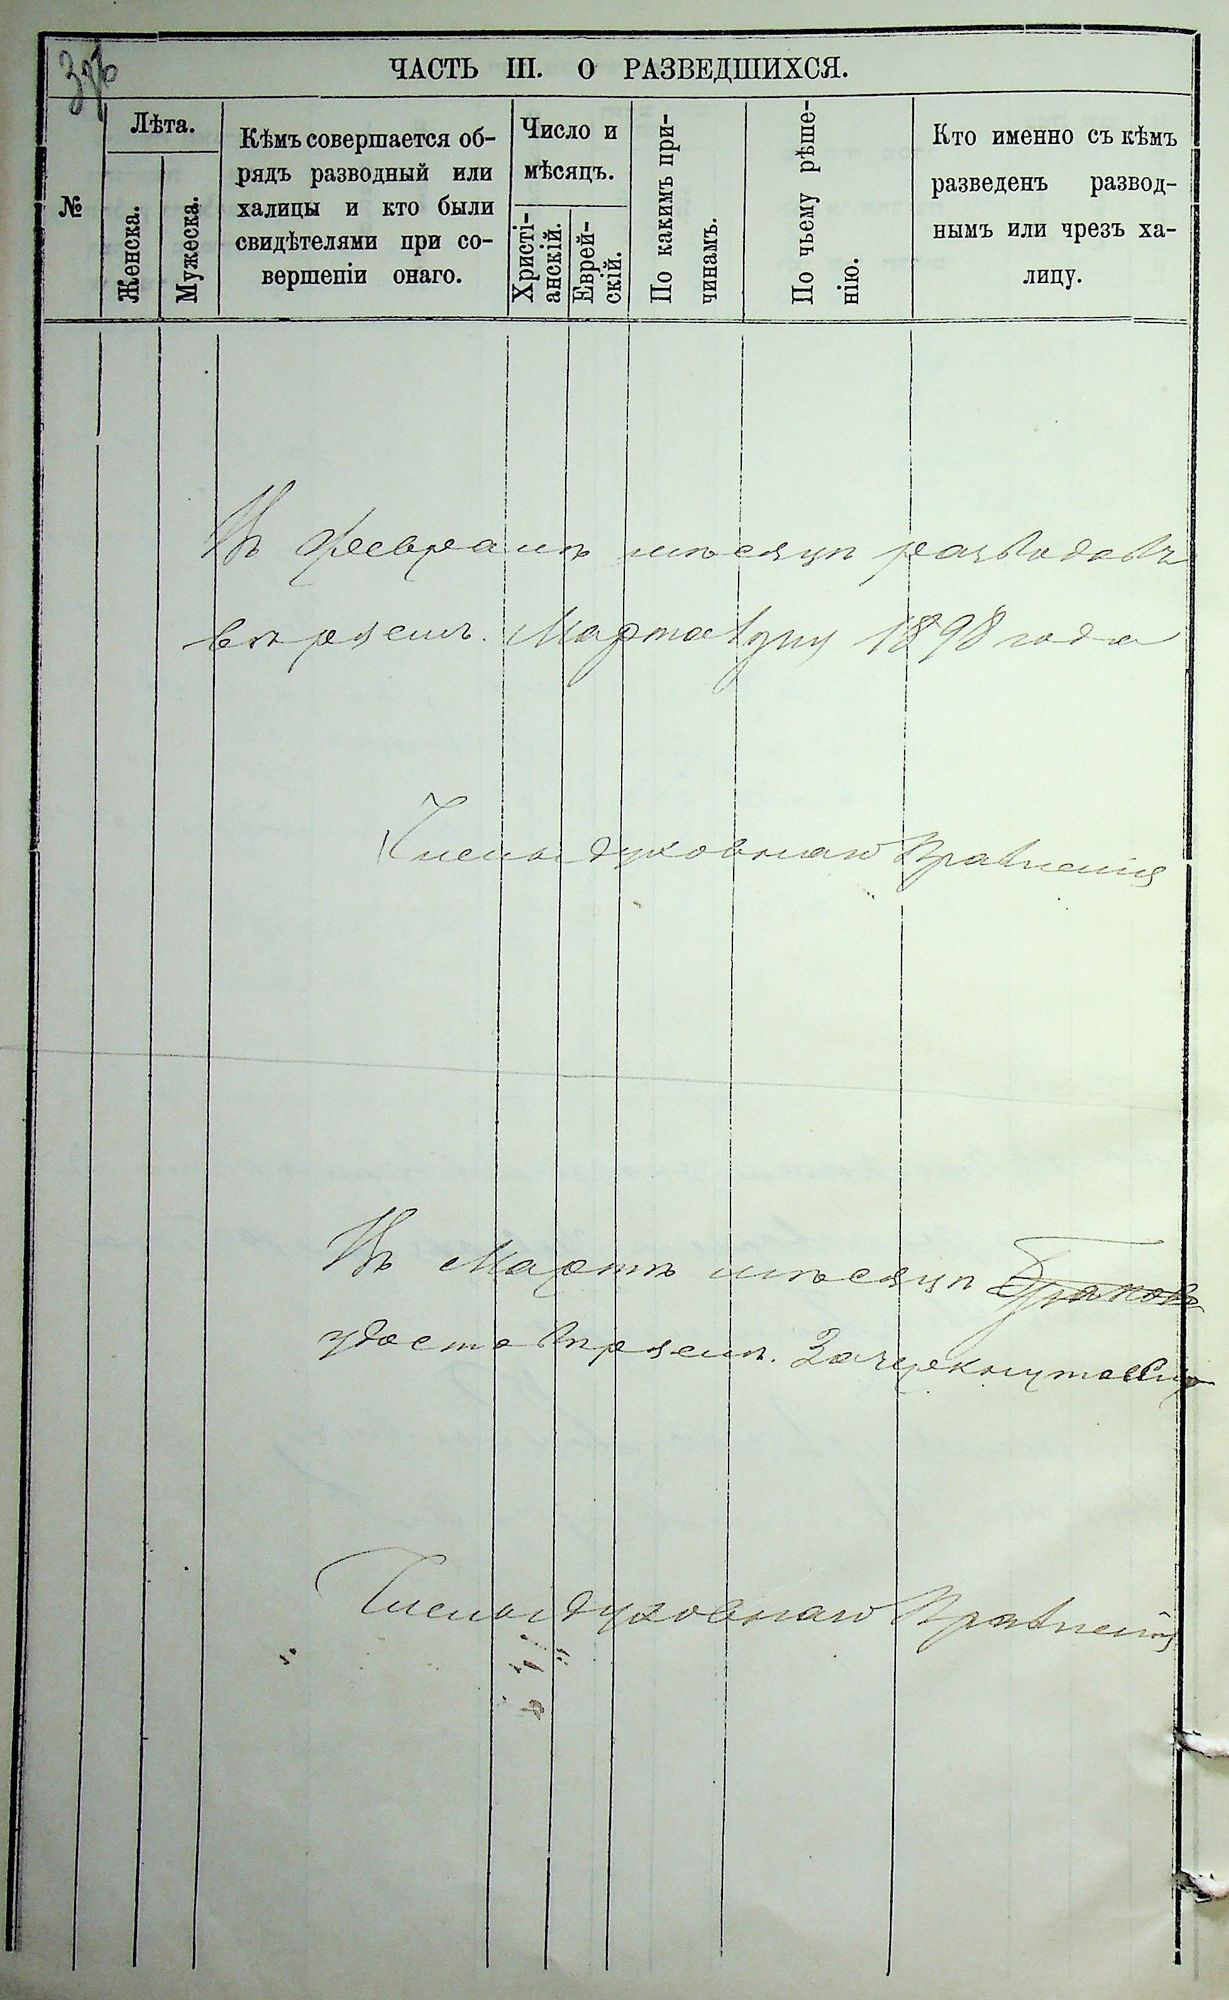 ЧАСТЬ III. О РАЗВЕДШИХСЯ.
№
Лѣта.
Женска.
Мужеска.
Кѣмъ совершается об-
рядъ разводный или
халицы и кто были
свидѣтелями при со-
вершеніи онаго.
Число и
мѣсяцъ.
Христі-
анскій.
Еврей-
скій.
По какимъ при-
чинамъ.
По чьему рѣше-
нію.
Кто именно съ кѣмъ
разведенъ развод-
нымъ или чрезъ ха-
лицу.
Въ Февралѣ мѣсяцѣ разводовъ
Марта 1898 года
Члены духовнаго Правленія
Въ Мартѣ мѣсяцѣ Браковъ
Члены духовнаго Правленія